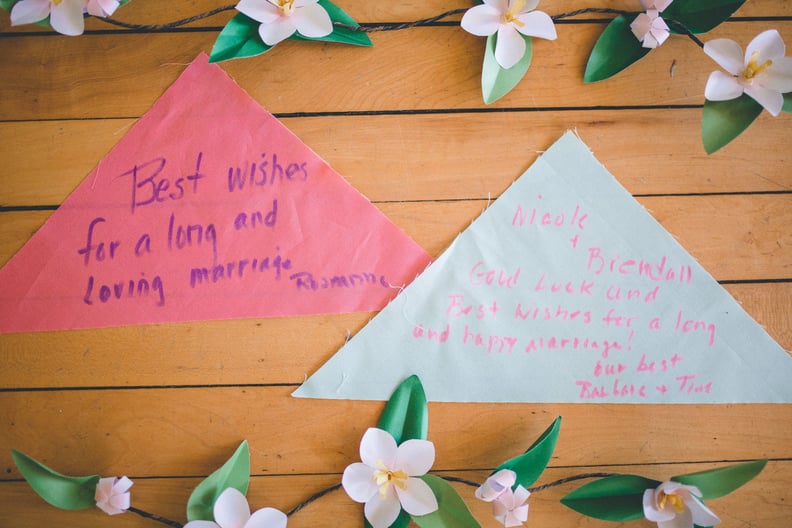 Best wishes
for a long and
loving marriage
Nicole
+
Brendan
Good Luck and
Best Wishes for a long
and happy marriage!
our best
Barbara + Tim